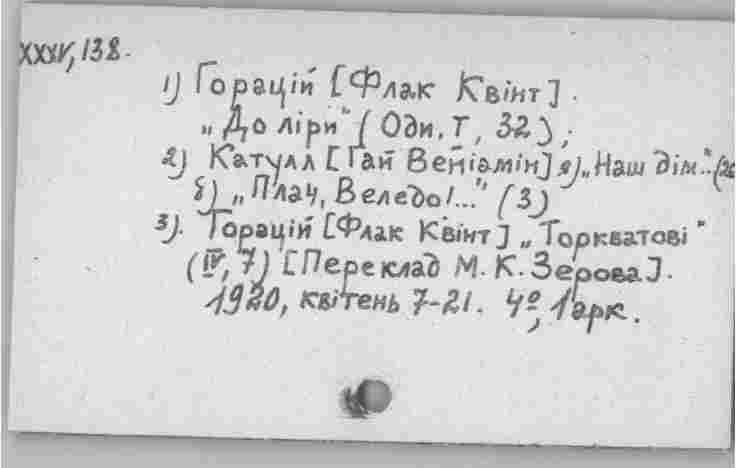 XXXV, 138.
1) Горацій [Флак Квінт].
„До ліри" (Оди, I, 32);
2) Катулл [Гай Веніамін] а) „Наш дім..." (26
б) „Плач, Веледо!..." (3)
3). Горацій [Флак Квінт] „Торкватові"
(IV, 7) [Переклад М. К. Зерова].
1920, квітень 7-21. 4º, 1 арк.